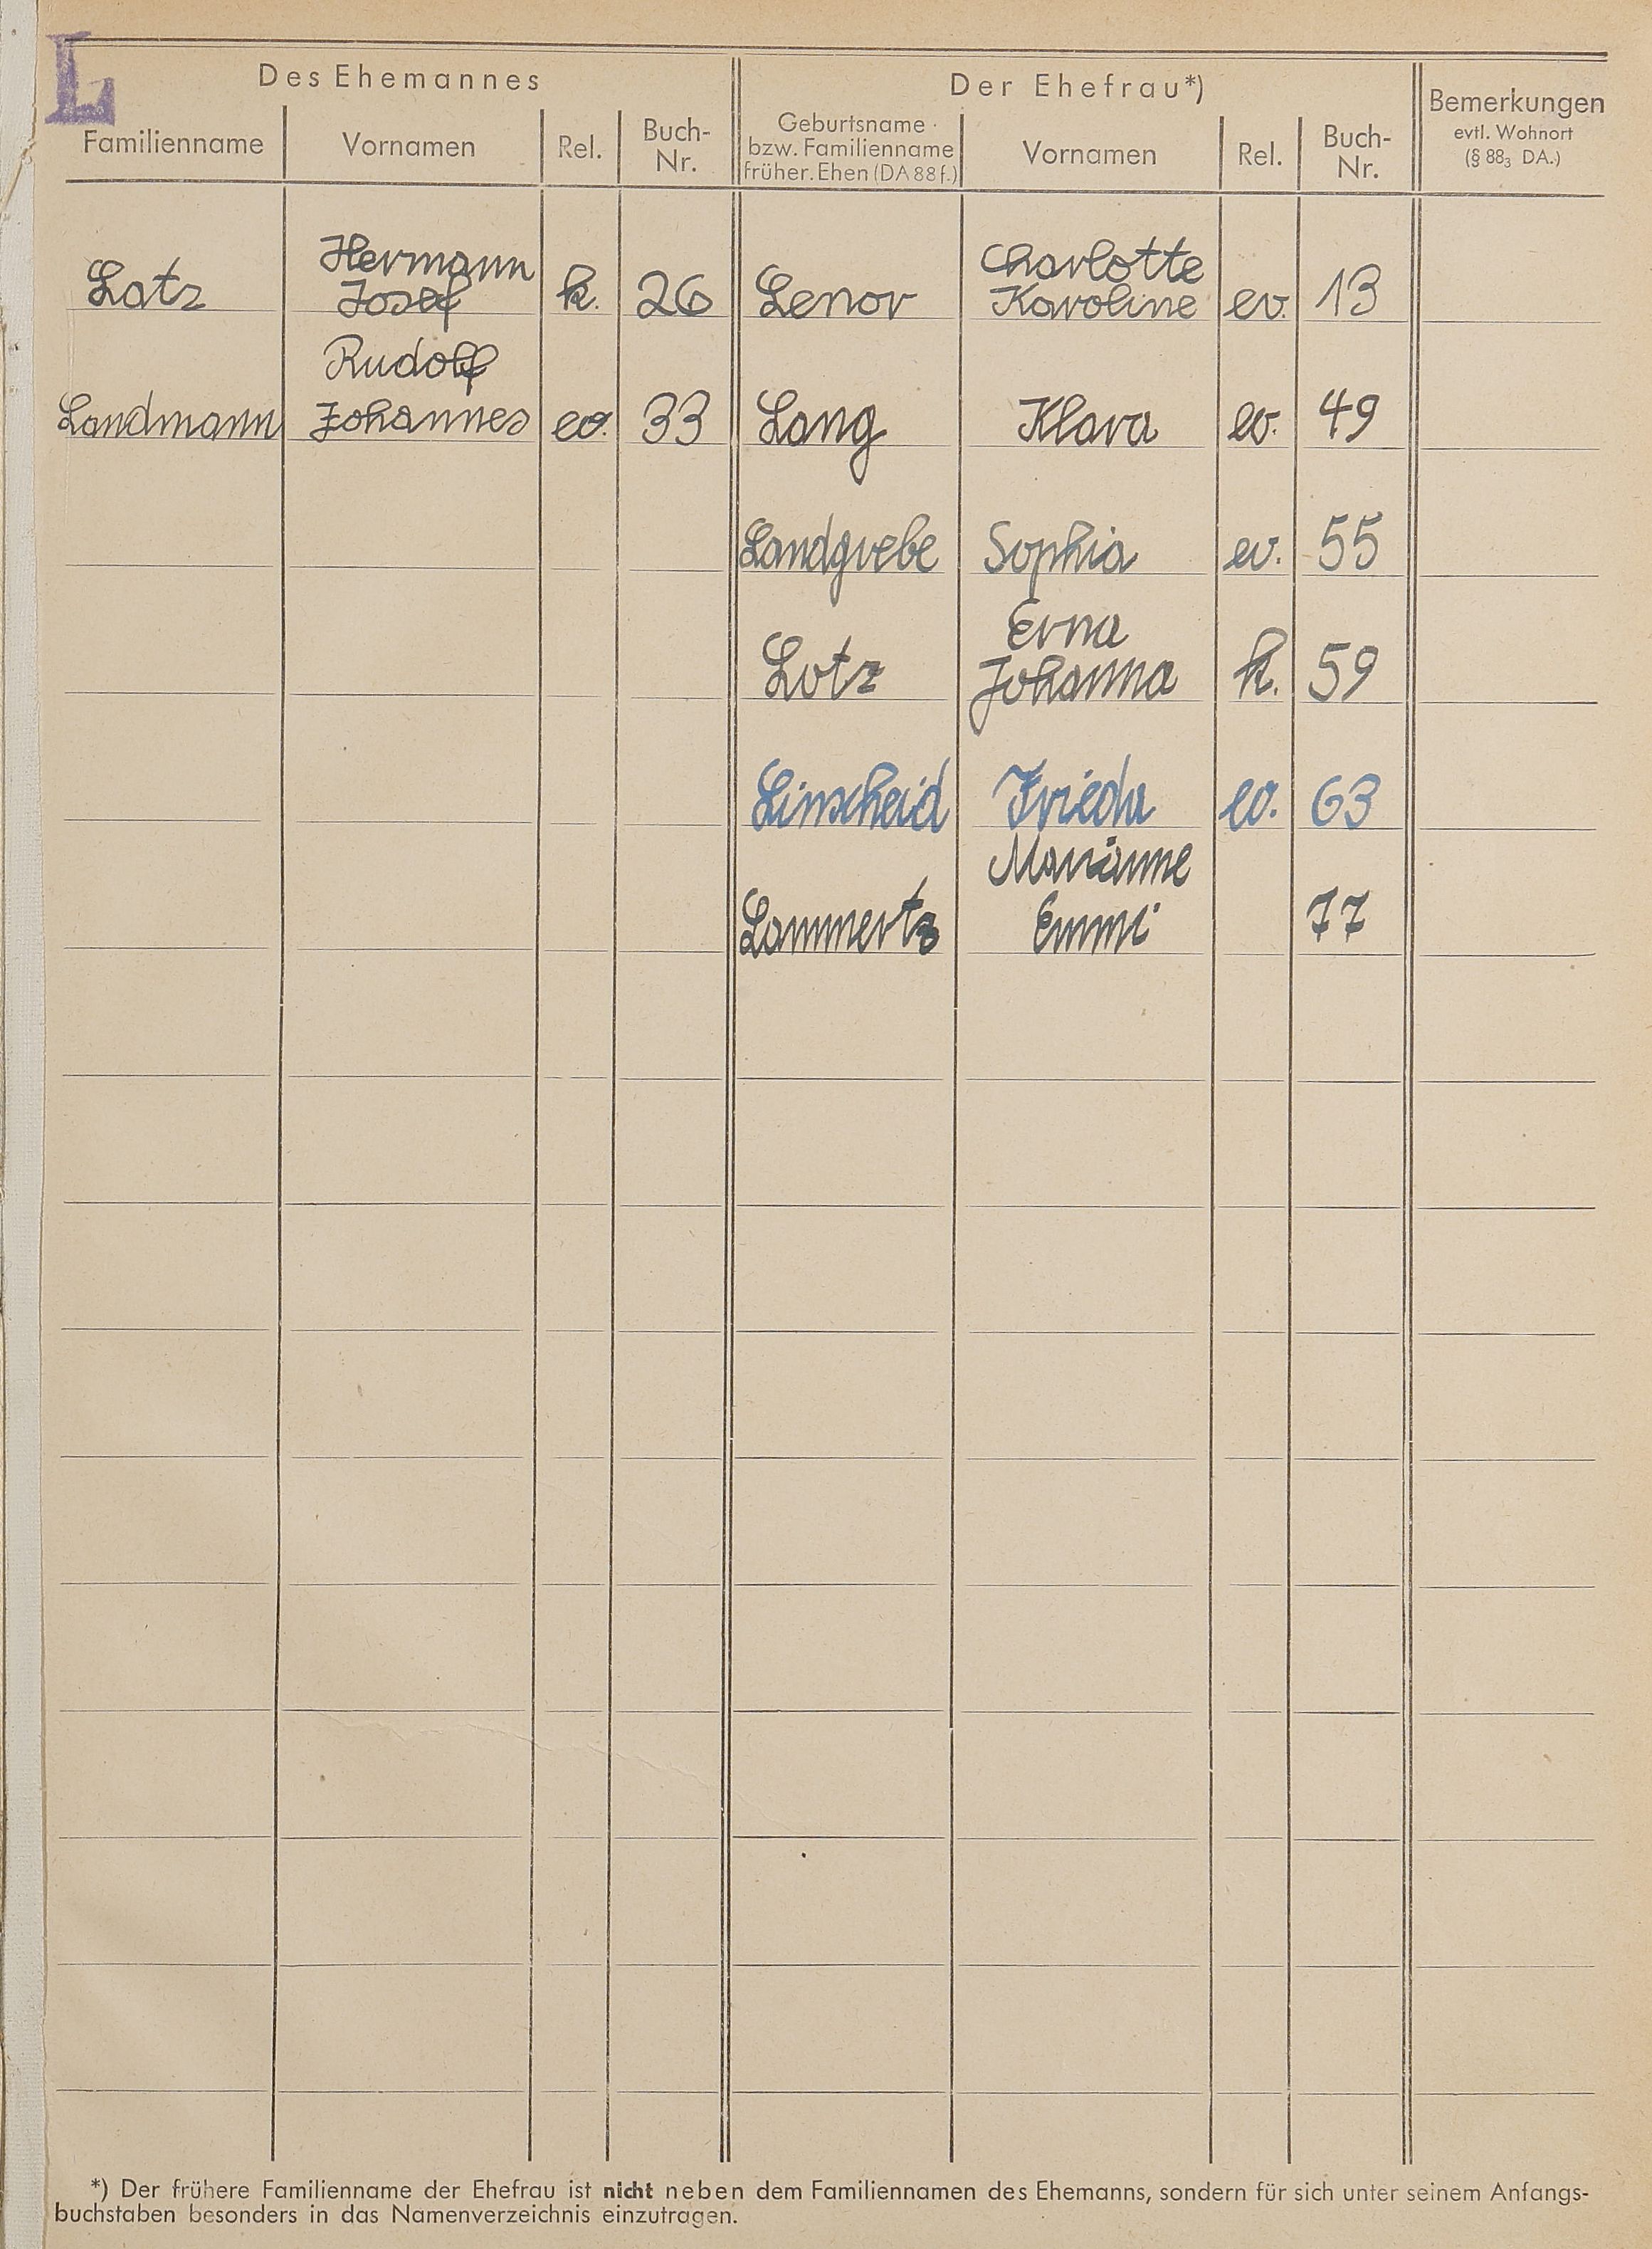 L
Des Ehemannes
Der Ehefrau*)
Bemerkungen
evtl. Wohnort
(§ 88₃ DA.)
Familienname
Vornamen
Rel.
Buch-
Nr.
Geburtsname
bzw. Familienname
früher. Ehen (DA 88 f.)
Vornamen
Rel.
Buch-
Nr.
Hermann
Latz Josef k. 26
Charlotte
Lenor Karoline ev. 13
Rudolf
Landmann Johannes ev. 33
Lang Klara ev. 49
Landgrebe Sophia ev. 55
Erna
Lotz Johanna k. 59
Linscheid Frieda ev. 63
Marianne
Lammertz Emmi 77
*) Der frühere Familienname der Ehefrau ist nicht neben dem Familiennamen des Ehemanns, sondern für sich unter seinem Anfangs-
buchstaben besonders in das Namenverzeichnis einzutragen.